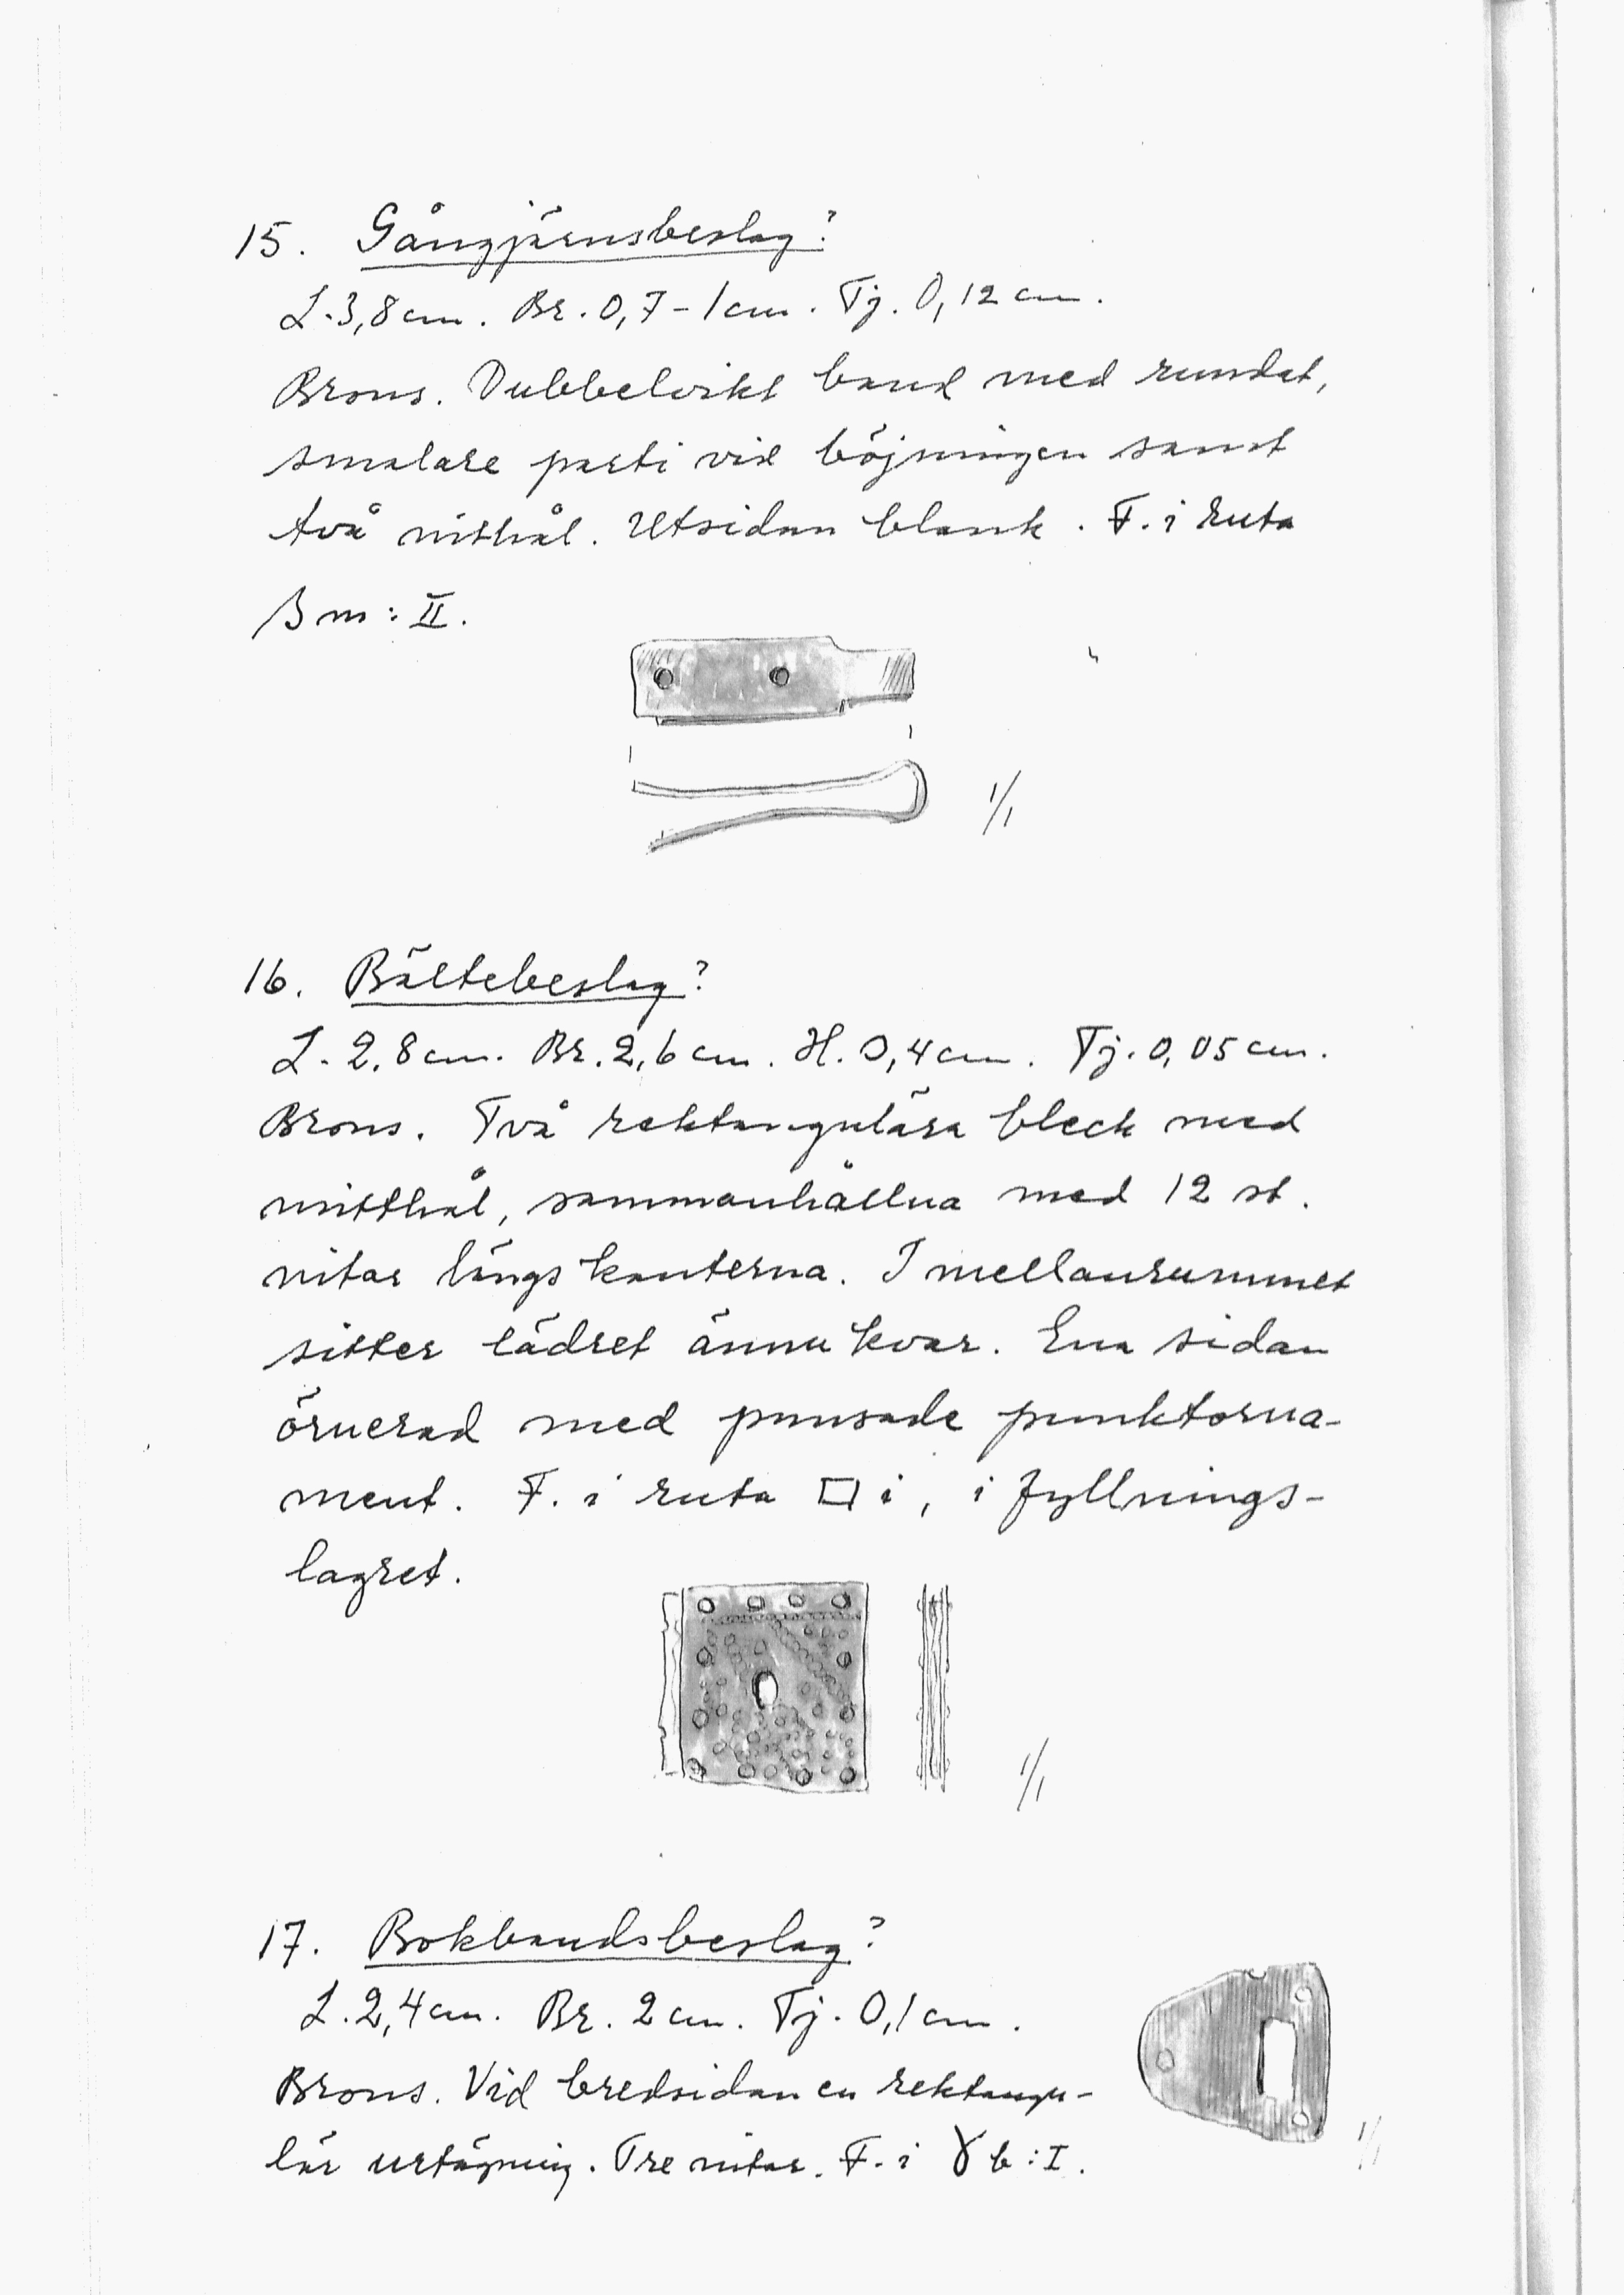 15. Gångjärnsbeslag?
L. 3,8 cm. Br. 0,7-1 cm. Tj. 0,12 cm.
Brons. Dubbelvikt band med rundat,
smalare parti vid böjningen samt
två nithål. Utsidan blank. F. i ruta
β m: II.
1/1
16. Bältebeslag?
L. 2,8 cm. Br. 2,6 cm. H. 0,4 cm. Tj. 0,05 cm.
Brons. Två rektangulära bleck med
mitthål, sammanhållna med 12 st.
nitar längs kanterna. I mellanrummet
sitter lädret ännu kvar. Ena sidan
örnerad med punsade punktorna-
ment. F. i ruta □ i, i fyllnings-
lagret.
1/1
17. Bokbandsbeslag?
L. 2,4 cm. Br. 2 cm. Tj. 0,1 cm.
Brons. Vid bredsidan en rektangu-
lär urtagning. Tre nitar. F. i ɣ b: I.
1/1